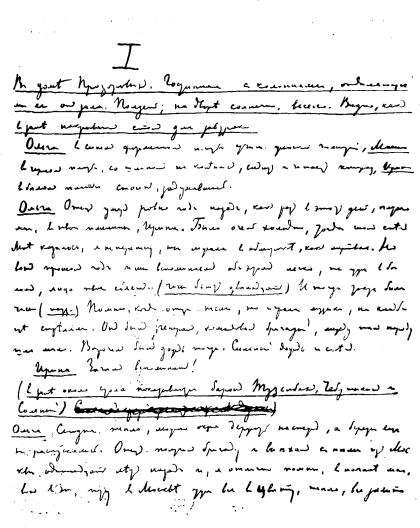 I
В доме Прозоровых. Гостиная с колоннами, отделяющими
ее от залы. Полдень; на дворе солнечно, весело. Видно, как
в зале накрывают стол для завтрака.
Ольга в синем форменном платье женской гимназии, Маша
в черном платье, со шляпкой на коленях, сидит и читает книжку, Ирина
в белом платье стоит, задумавшись.
Ольга Отец умер ровно год назад, как раз в этот день, пятого
мая, в твои именины, Ирина. Было очень холодно, тогда шел снег.
Мне казалось, я не переживу, ты лежала в обмороке, как мертвая. Но
вот прошел год и мы вспоминаем об этом легко, ты уже в бе
лом, лицо твое сияет. (часы бьют двенадцать) И тогда также били
часы (пауза) Помню, когда отца несли, то играла музыка, на кладби
ще стреляли. Он был генерал, командовал бригадой, между тем народу
шло мало. Впрочем был дождь тогда. Сильный дождь и снег.
Ирина Зачем вспоминать!
(В зале около стола показываются барон Тузенбах, Чебутыкин и
Соленый)
Ольга Сегодня тепло, можно окна держать настежь, а березы еще
не распускались. Отец получил бригаду и выехал с нами из Мос
квы одиннадцать лет назад и, я отлично помню, в начале мая,
вот в эту пору в Москве уже все в цвету, тепло, все залито